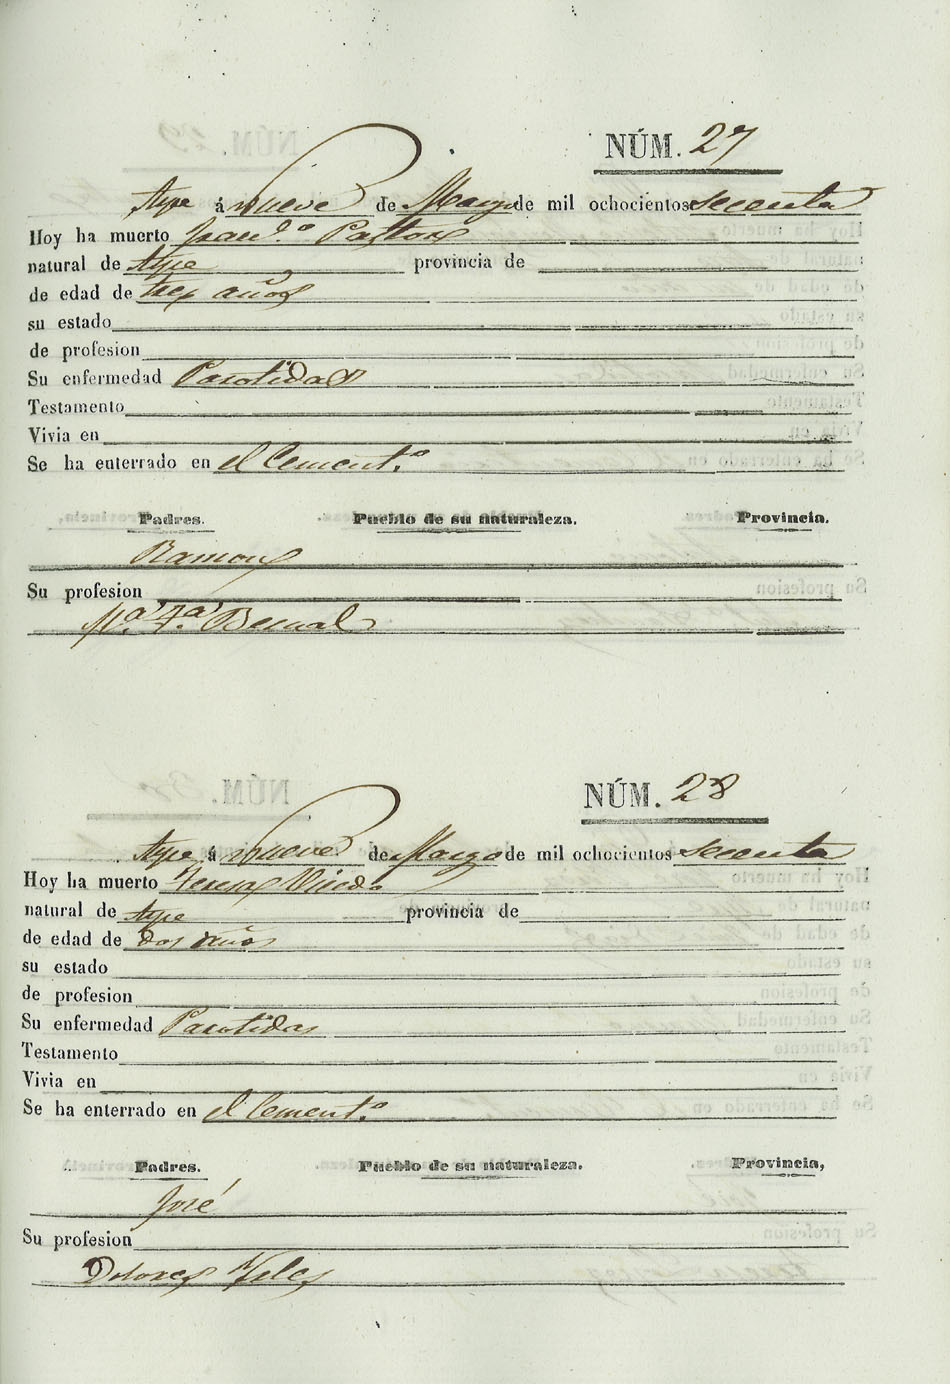 NÚM. 27
Aspe á Nueve de Marzo de mil ochocientos secenta
Hoy ha muerto Franᶜᵒ Pastor
natural de Aspe provincia de
de edad de tres años
su estado
de profesion
Su enfermedad Parotidas
Testamento
Vivia en
Se ha enterrado en el Cementº
Padres. Pueblo de su naturaleza. Provincia.
Ramon
Su profesion
Mª Fª Bernal
NÚM. 28
Aspe á Nueve de Marzo de mil ochocientos secenta
Hoy ha muerto Teresa
natural de Aspe provincia de
de edad de dos años
su estado
de profesion
Su enfermedad Parotidas
Testamento
Vivia en
Se ha enterrado en el Cementº
Padres. Pueblo de su naturaleza. Provincia,
José
Su profesion
Dolores